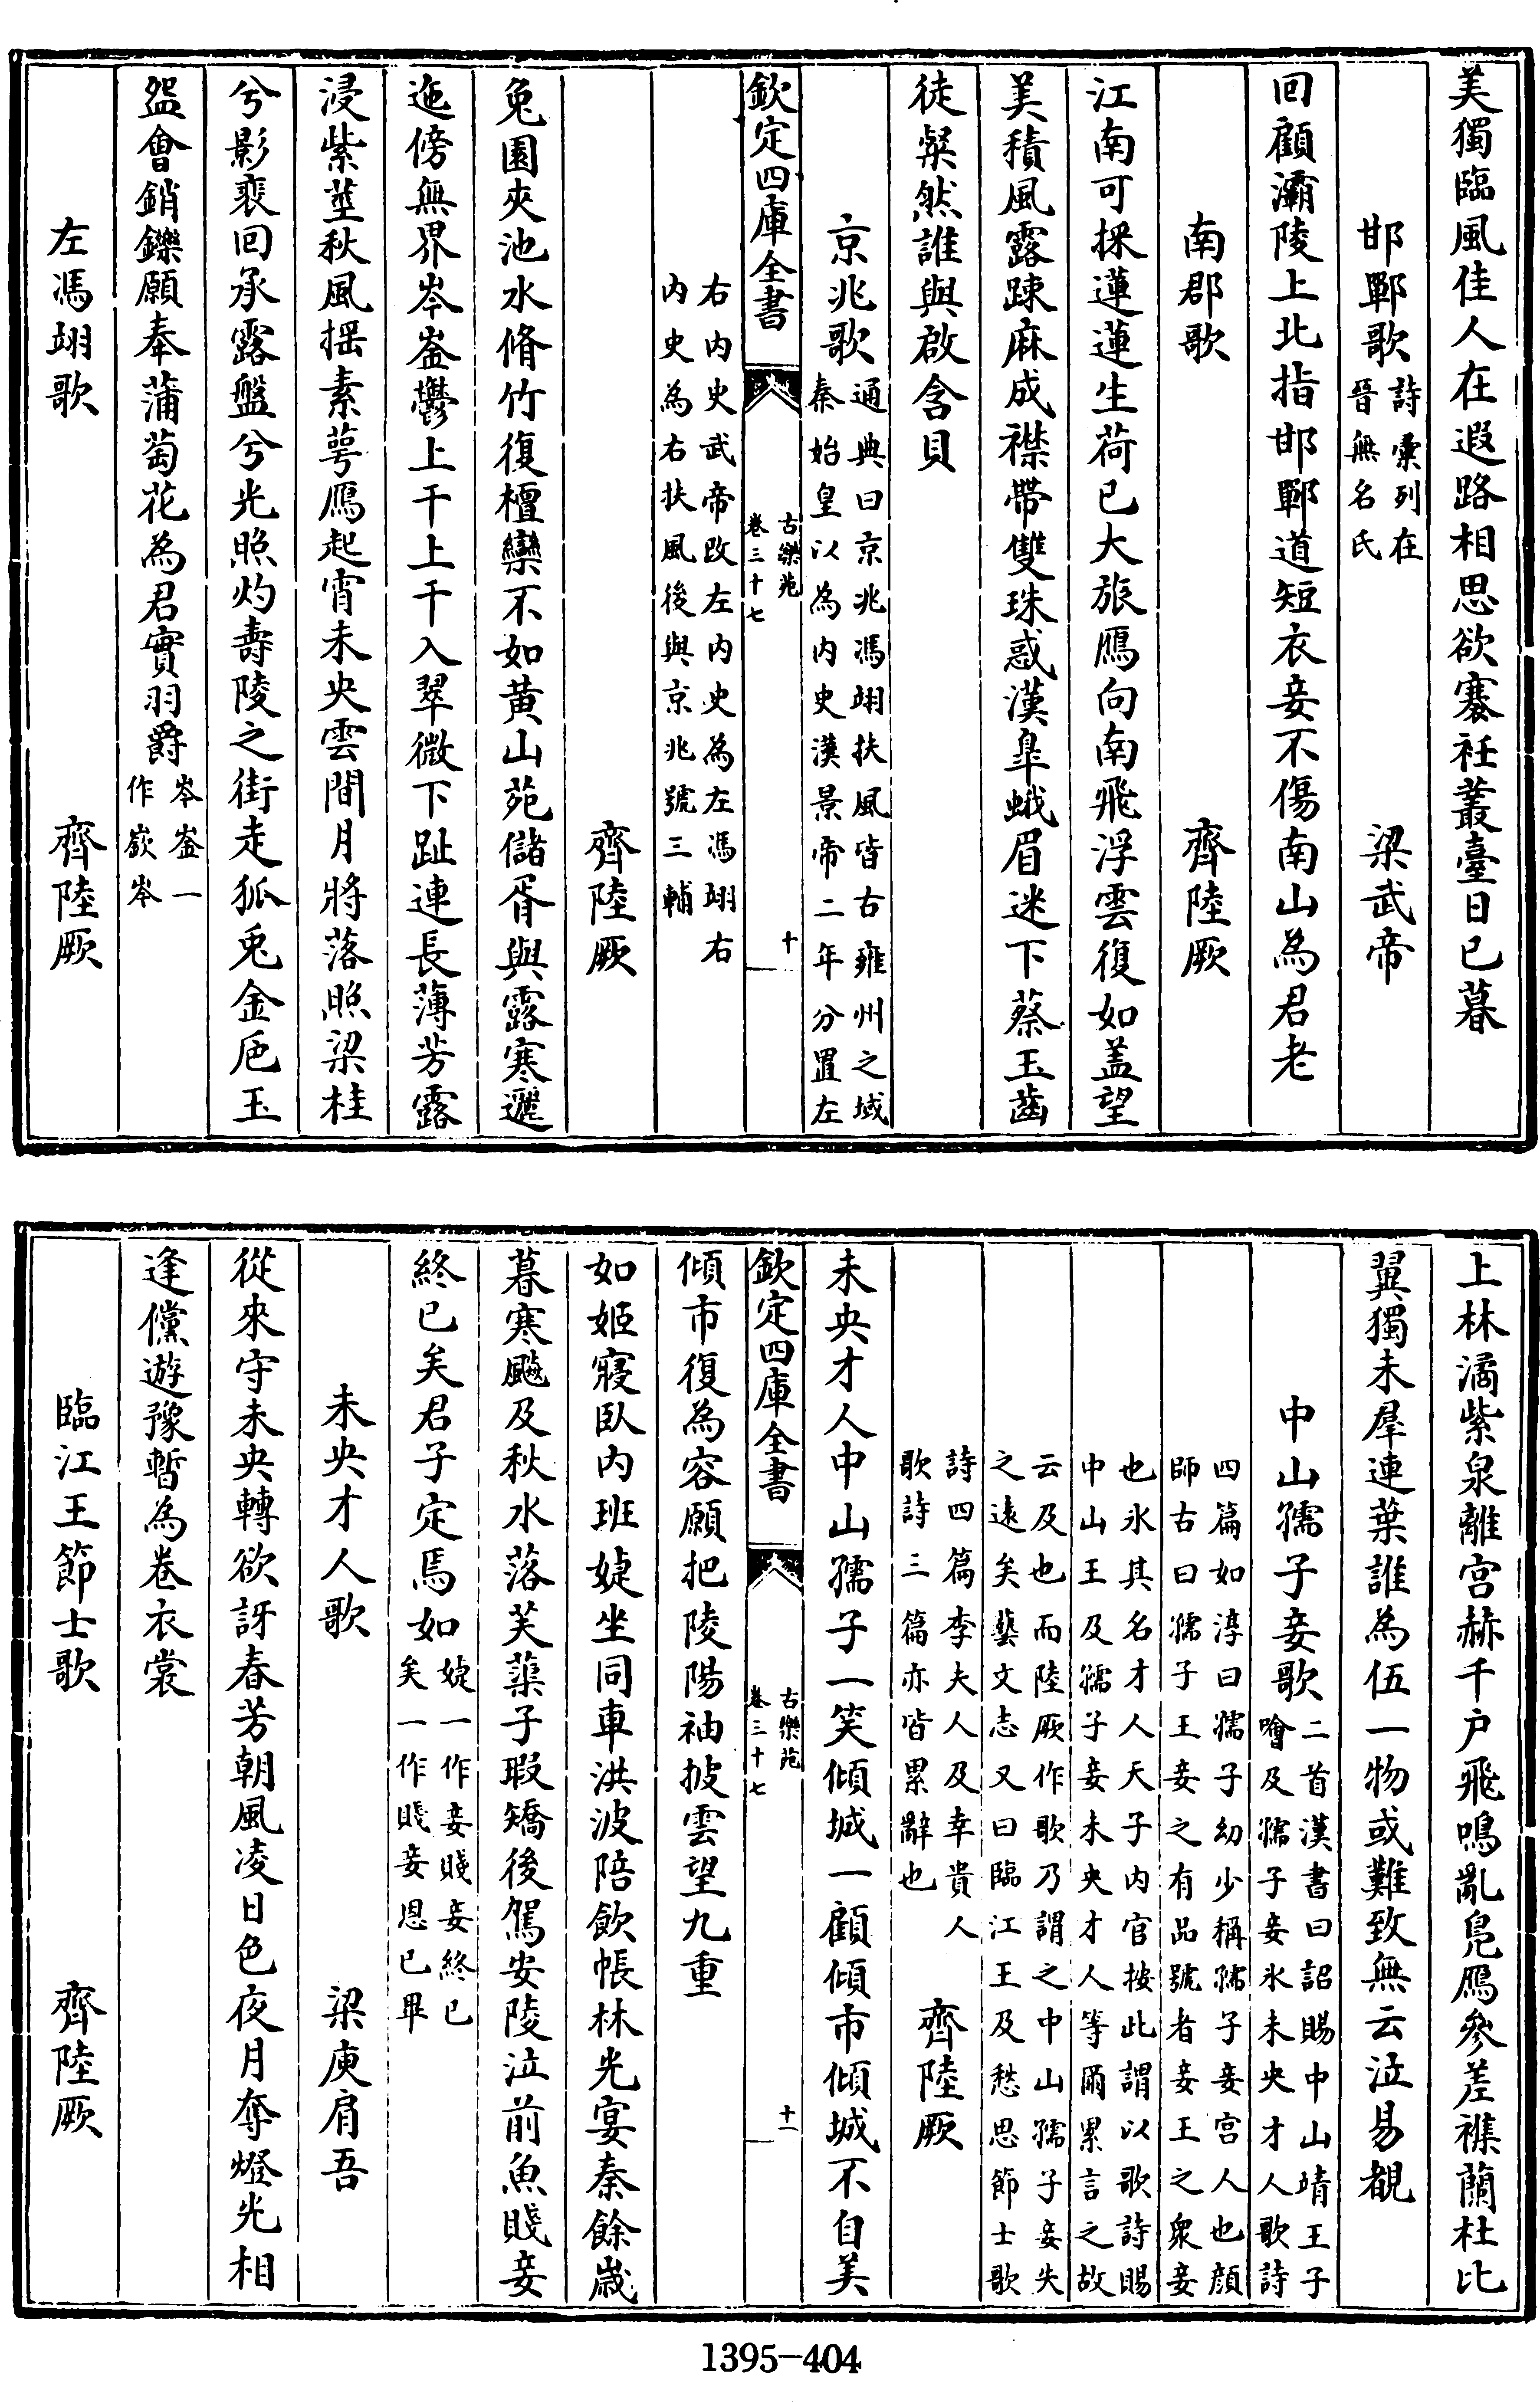 美獨臨風佳人在遐路相思欲褰衽叢臺日已暮
邯鄲歌詩彙列在晉無名氏 梁武帝
回顧灞陵上北指邯鄲道短衣妾不傷南山為君老
南郡歌 齊陸厥
江南可採蓮蓮生荷已大旅鴈向南飛浮雲復如盖望
美積風露踈麻成襟帶雙珠惑漢臯蛾眉迷下蔡玉齒
徒粲然誰與啟含貝
京兆歌通典曰京兆馮翊扶風皆古雍州之域秦始皇以為内史漢景帝二年分置左
欽定四庫全書 古樂苑卷三十七 十
右内史武帝改左内史為左馮翊右内史為右扶風後與京兆號三輔
齊陸厥
兔園夾池水脩竹復檀欒不如黄山苑儲胥與露寒邐
迤傍無界岑崟鬱上干上干入翠微下趾連長薄芳露
浸紫莖秋風摇素萼鴈起宵未央雲間月將落照梁桂
兮影裵回承露盤兮光照灼壽陵之街走狐兎金巵玉
盌會銷鑠願奉蒲萄花為君實羽爵岑崟一作嶔岑
左馮翊歌 齊陸厥
上林潏紫泉離宫赫千户飛鳴亂鳬鴈參差襍蘭杜比
翼獨未羣連葉誰為伍一物或難致無云泣易覩
中山孺子妾歌二首漢書曰詔賜中山靖王子噲及孺子妾氷未央才人歌詩
四篇如淳曰孺子幼少稱孺子妾宫人也顔師古曰孺子王妾之有品號者妾王之衆妾
也氷其名才人天子内官按此謂以歌詩賜中山王及孺子妾未央才人等爾累言之故
云及也而陸厥作歌乃謂之中山孺子妾失之逺矣藝文志又曰臨江王及愁思節士歌
詩四篇李夫人及幸貴人歌詩三篇亦皆累辭也 齊陸厥
未央才人中山孺子一笑傾城一顧傾市傾城不自美
欽定四庫全書 古樂苑卷三十七 十一
傾市復為容願把陵陽袖披雲望九重
如姬寢臥内班婕坐同車洪波陪飲帳林光宴秦餘歲
暮寒飈及秋水落芙蕖子瑕矯後駕安陵泣前魚賤妾
終已矣君子定焉如婕一作妾賤妾終已矣一作賤妾恩已畢
未央才人歌 梁庾肩吾
從來守未央轉欲訝春芳朝風凌日色夜月奪燈光相
逢儻遊豫暫為卷衣裳
臨江王節士歌 齊陸厥
1395-404